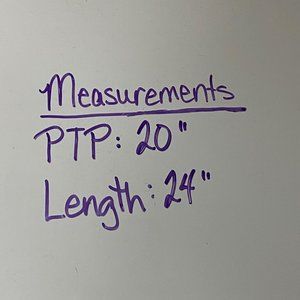 Measurements
PTP: 20"
Length: 24"